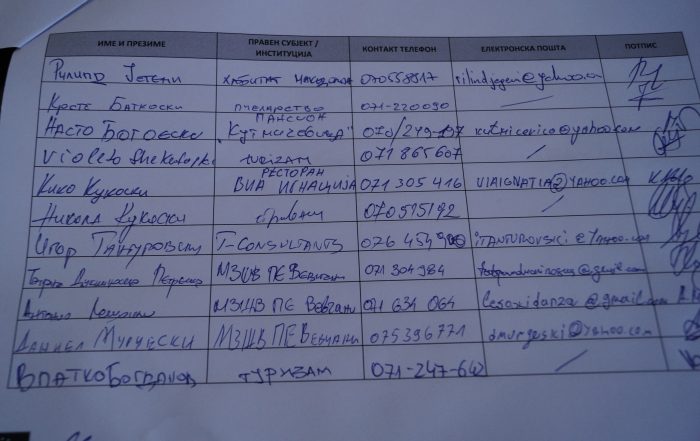 ИМЕ И ПРЕЗИМЕ ПРАВЕН СУБЈЕКТ / ИНСТИТУЦИЈА КОНТАКТ ТЕЛЕФОН ЕЛЕКТРОНСКА ПОШТА ПОТПИС
070558517
Крсте Баткоски пчеларство 071-220090
Насто Богоески ПАНСИОН "Кутмичовица" 070/249-197 kutmicevica@yahoo.com
Violeta 071865607
Кико Кукоски РЕСТОРАН ВИА ИГНАЦИЈА 071 305 416 VIAIGNATIA@YAHOO.COM
Никола Кукоски 070515192
Игор Тантуровски T-CONSULTANTS 076 454 ITANTUROVSKI@Yahoo.com
МЗШВ ПЕ Вевчани 071 304 984
МЗШВ ПЕ Вевчани 071 634 064 @gmail.com
Даниел Мурчески МЗШВ ПЕ Вевчани 075396771 dmurgeski@yahoo.com
Влатко Богданов туризам 071-247-642